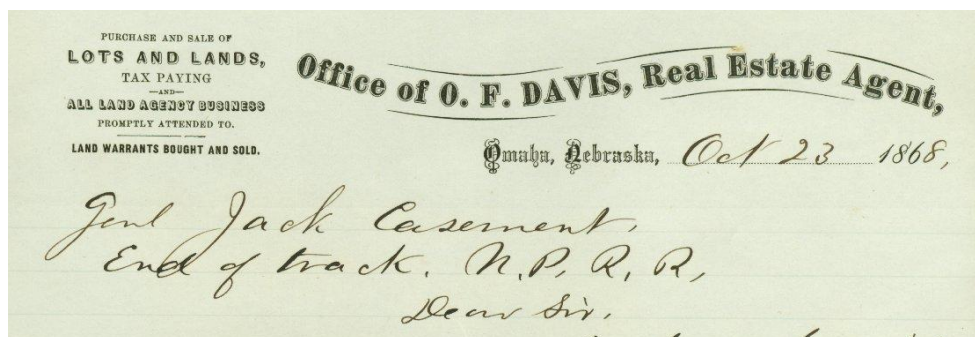 PURCHASE AND SALE OF
LOTS AND LANDS,
TAX PAYING
—AND—
ALL LAND AGENCY BUSINESS
PROMPTLY ATTENDED TO.
LAND WARRANTS BOUGHT AND SOLD.
Office of O. F. DAVIS, Real Estate Agent,
Omaha, Nebraska, Oct 23 1868,
Genl Jack Casement.
End of track. U.P. R. R,
Dear Sir.